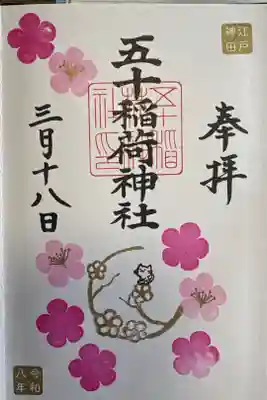 江戸
神田
奉拝
五十稲荷神社
三月十八日
令和
八年